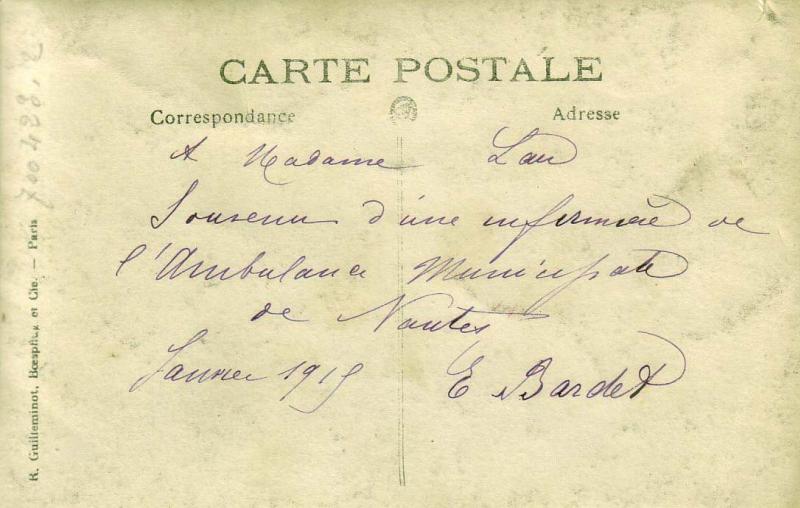 CARTE POSTALE
Correspondance
Adresse
A Madame Lau
Souvenir d'une infirmière de
l'Ambulance Municipale
de Nantes
Janvier 1915
E Bardet
R. Guilleminot, Bœspflug et Cie. — Paris